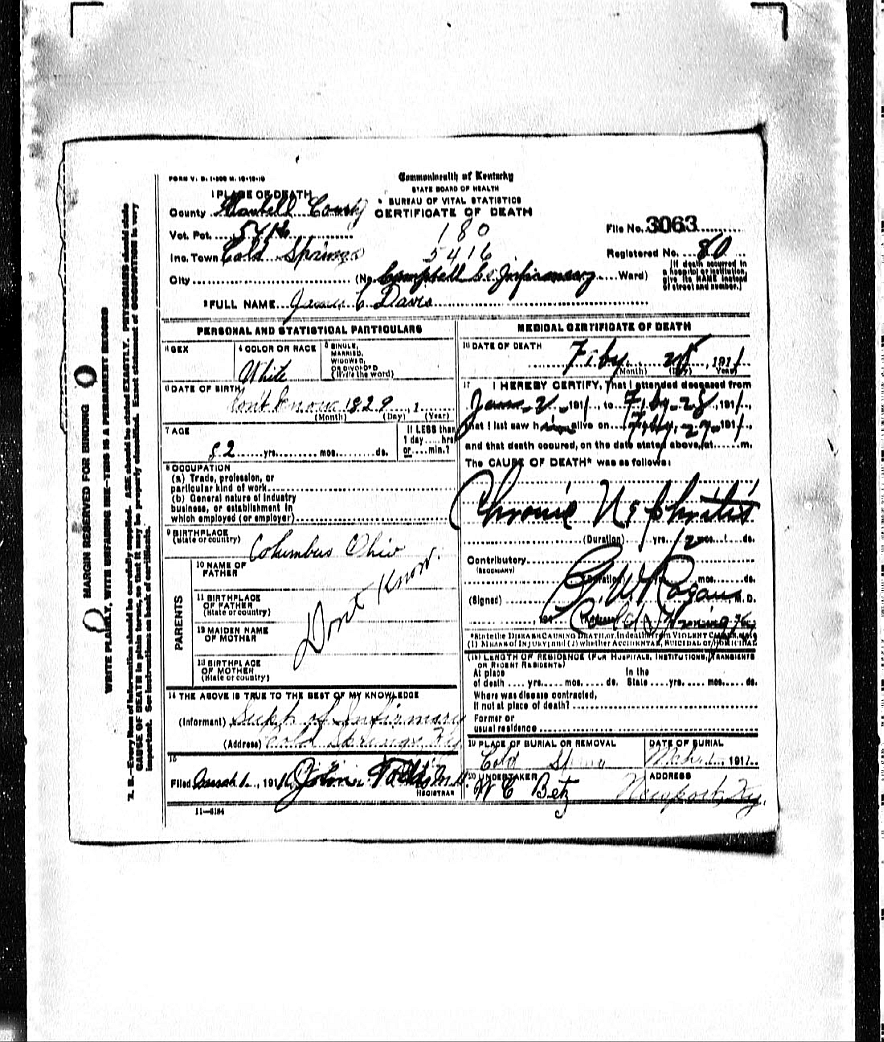 MARGIN RESERVED FOR BINDING
WRITE PLAINLY, WITH UNFADING INK—THIS IS A PERMANENT RECORD
N. B.—Every item of information should be carefully supplied. AGE should be stated EXACTLY. PHYSICIANS should state
CAUSE OF DEATH in plain terms, so that it may be properly classified. Exact statement of OCCUPATION is very
important. See instructions on back of certificate.
Commonwealth of Kentucky
STATE BOARD OF HEALTH
BUREAU OF VITAL STATISTICS
CERTIFICATE OF DEATH
1 PLACE OF DEATH
County Campbell County
Vot. Pct. 5416
180
File No. 3063
Inc. Town Cold Springs
5416
Registered No. 80
City (No. Campbell Co Infirmary Ward)
[If death occurred in
a hospital or institution,
give its NAME instead
of street and number.]
2 FULL NAME James C Davis
PERSONAL AND STATISTICAL PARTICULARS
3 SEX
4 COLOR OR RACE
White
5 SINGLE,
MARRIED,
WIDOWED,
OR DIVORCED
(Write the word)
6 DATE OF BIRTH
Dont Know 1829, 1
(Month) (Day) (Year)
7 AGE
82 yrs. mos. ds.
If LESS than
1 day hrs
or min.?
8 OCCUPATION
(a) Trade, profession, or
particular kind of work
(b) General nature of industry
business, or establishment in
which employed (or employer)
9 BIRTHPLACE
(State or country)
Columbus Ohio
PARENTS
10 NAME OF
FATHER
11 BIRTHPLACE
OF FATHER
(State or country)
12 MAIDEN NAME
OF MOTHER
13 BIRTHPLACE
OF MOTHER
(State or country)
Dont Know.
14 THE ABOVE IS TRUE TO THE BEST OF MY KNOWLEDGE
(Informant) Supt of Infirmary
(Address) Cold Springs Ky
15
Filed March 1, 1911 John
REGISTRAR
11—6184
MEDICAL CERTIFICATE OF DEATH
16 DATE OF DEATH
Feby 28, 1911
(Month) (Day) (Year)
17 I HEREBY CERTIFY, That I attended deceased from
Jan 2, 1911, to Feby 28, 1911,
that I last saw him alive on Feby 27, 1911,
and that death occured, on the date stated above, at m.
The CAUSE OF DEATH* was as follows:
Chronic Nephritis
(Duration) 1 yrs. 2 mos. ds.
Contributory
(SECONDARY)
(Duration) yrs. mos. ds.
(Signed) Rogans M.D.
Cold Spring Ky
*State the DISEASE CAUSING DEATH, or, in deaths from VIOLENT CAUSES, state
(1) MEANS OF INJURY; and (2) whether ACCIDENTAL, SUICIDAL or HOMICIDAL
18 LENGTH OF RESIDENCE (FOR HOSPITALS, INSTITUTIONS, TRANSIENTS
OR RECENT RESIDENTS)
At place
of death yrs. mos. ds.
In the
State yrs. mos. ds.
Where was disease contracted,
if not at place of death?
Former or
usual residence
19 PLACE OF BURIAL OR REMOVAL
Cold Spring
DATE OF BURIAL
Mch 1, 1911
20 UNDERTAKER
W C Betz
ADDRESS
Newport, Ky.